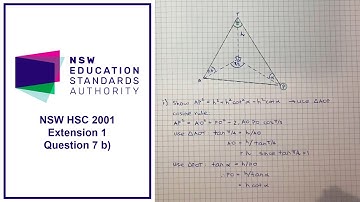 NSW
EDUCATION
STANDARDS
AUTHORITY
NSW HSC 2001
Extension 1
Question 7 b)
T
h
A
P
i) Show AP² = h² + h² cot² α - h² cot α → use △AOP
cosine rule
AP² = AO² + PO² - 2.AO.PO cos π/3
Use △AOT tan π/4 = h/AO
AO = h/tan π/4
= h since tan π/4 = 1
Use △POT tan α = h/PO
PO = h/tan α
= h cot α